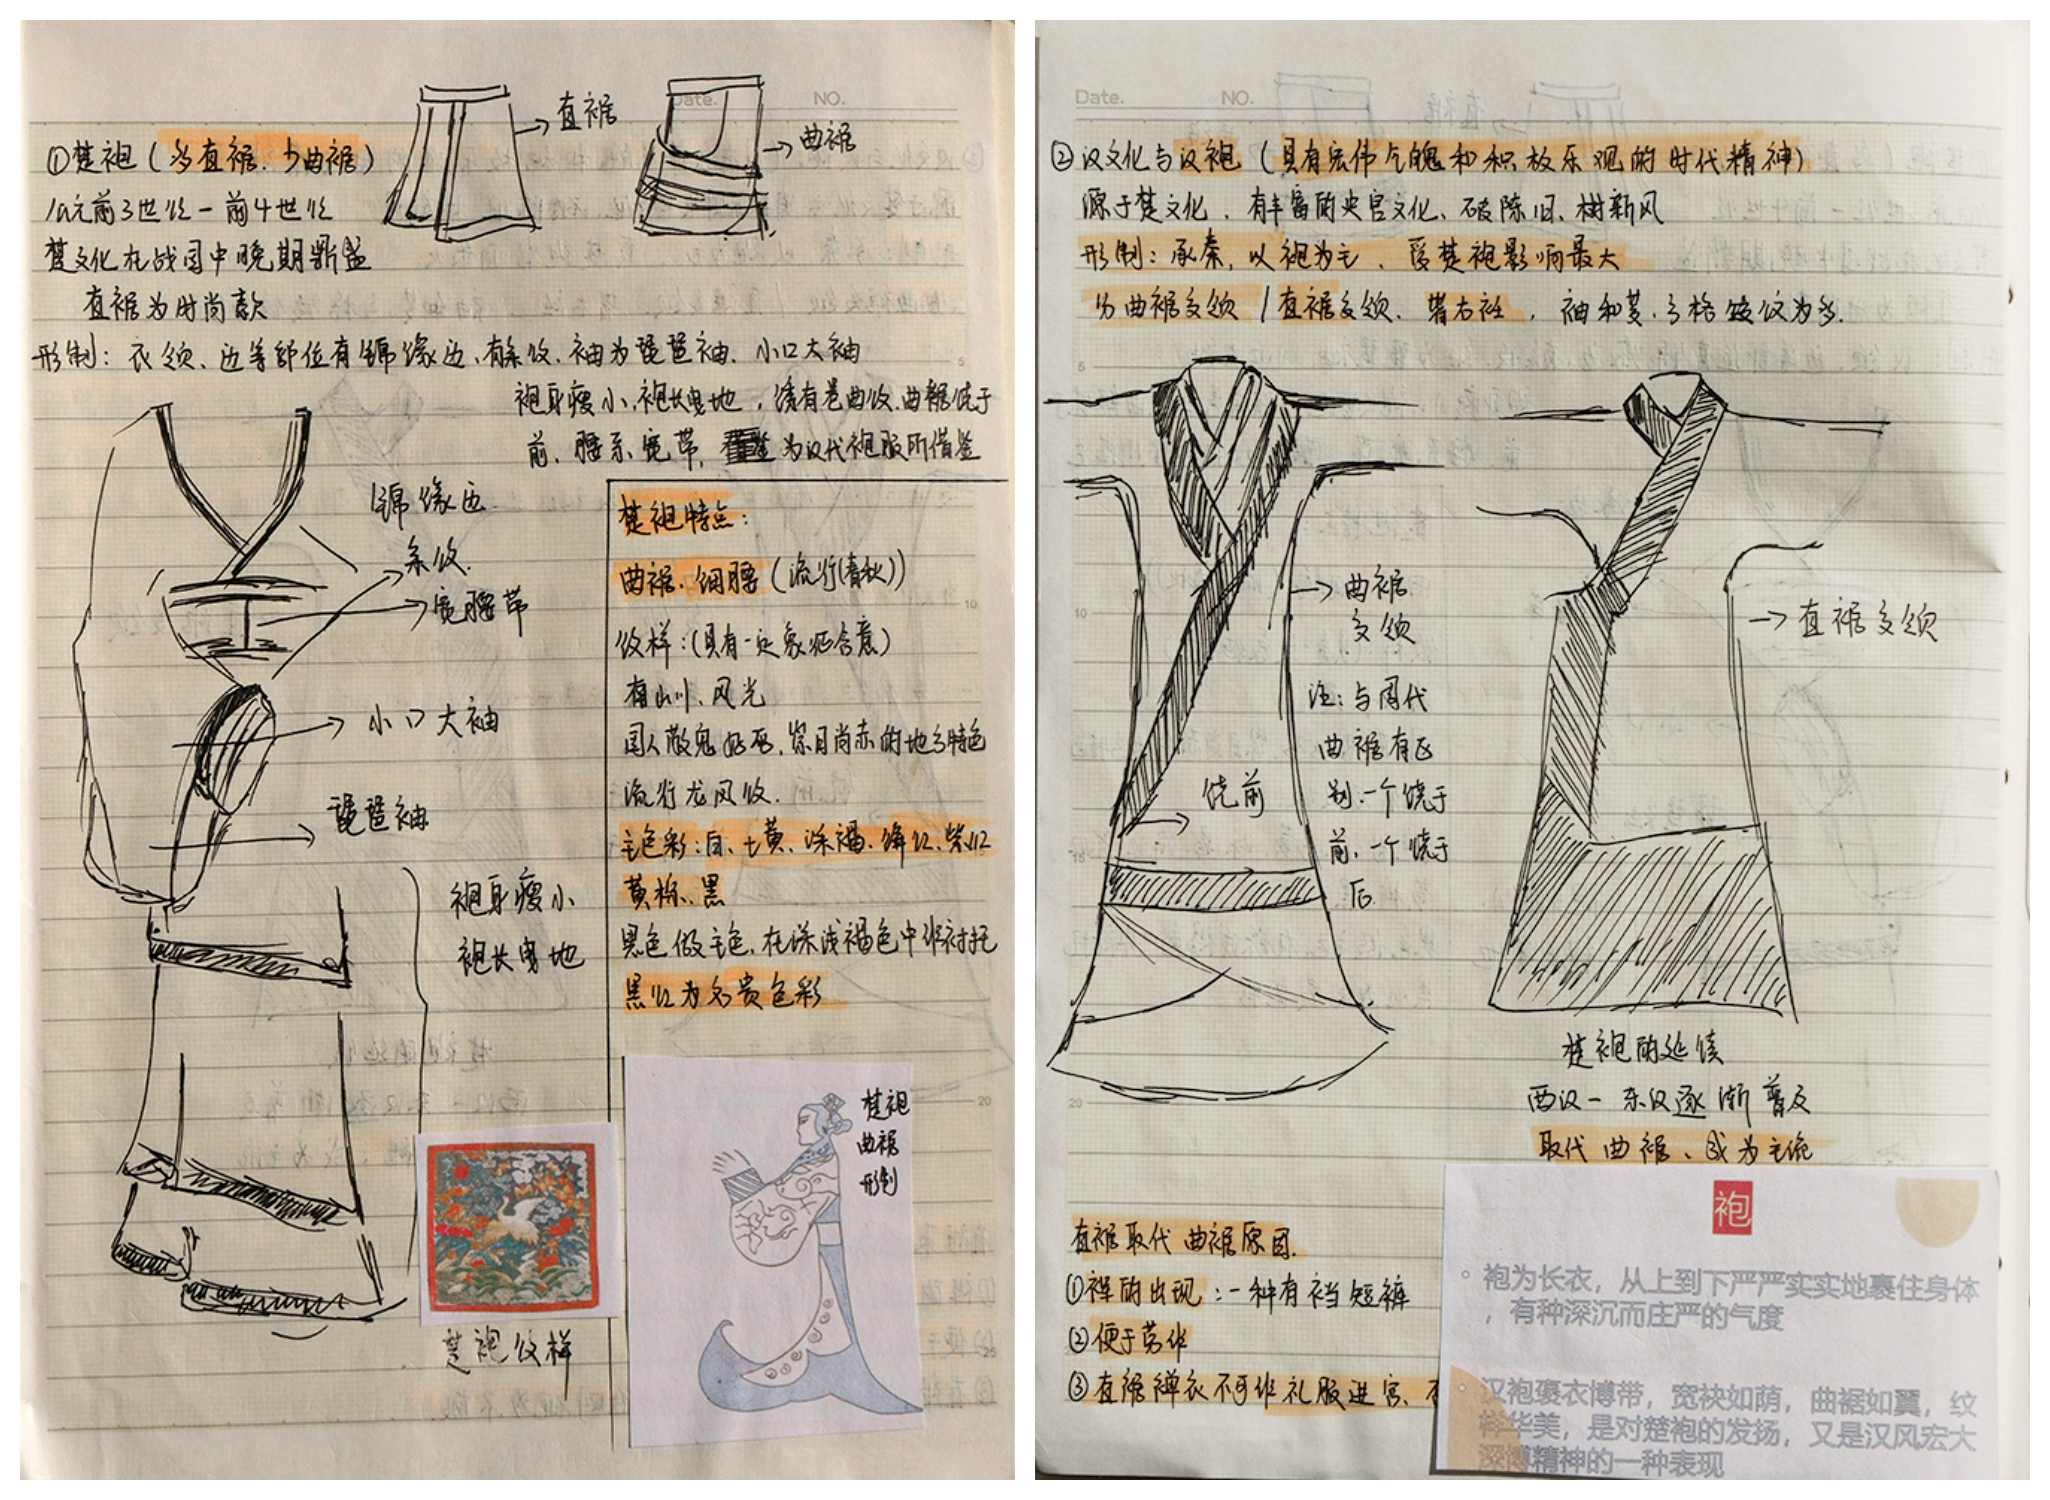 Date. NO.
直裾
曲裾
①楚袍（多直裾、少曲裾）
公元前3世纪-前4世纪
楚文化在战国中晚期鼎盛
直裾为时尚款
形制：衣领、边等部位有锦缘边、有条纹、袖为琵琶袖、小口大袖
袍身瘦小、袍长曳地，绣有卷曲纹、曲裾绕于
前、腰系宽带，为汉代袍服所借鉴
锦缘边
条纹
宽腰带
小口大袖
琵琶袖
袍身瘦小
袍长曳地
楚袍特点：
曲裾、细腰（流行(春秋)）
纹样：(具有一定象征含意)
有山川、风光
国人敬鬼好巫，崇日尚赤的地方特色
流行龙凤纹.
主色彩：白、土黄、深褐、绛红、紫红
黄棕、黑
黑色做主色，在深浅褐色中作衬托
黑红为名贵色彩
楚袍纹样
楚袍
曲裾
形制
Date. NO.
②汉文化与汉袍（具有宏伟气魄和积极乐观的时代精神）
源于楚文化、有丰富的史官文化、破陈旧、树新风
形制：承秦，以袍为主、受楚袍影响最大
分曲裾交领/直裾交领、
，袖和
曲裾
交领
注：与周代
曲裾有区
别、一个绕于
前、一个绕于
后
绕前
直裾交领
楚袍的延续
西汉-东汉逐渐普及
取代曲裾、成为主流
直裾取代曲裾原因.
①裈的出现：一种有裆短裤
②便于劳作
③直裾禅衣不可作礼服进宫、
袍
袍为长衣，从上到下严严实实地裹住身体
，有种深沉而庄严的气度
汉袍褒衣博带，宽袂如荫，曲裾如翼，纹
样华美，是对楚袍的发扬，又是汉风宏大
深博精神的一种表现